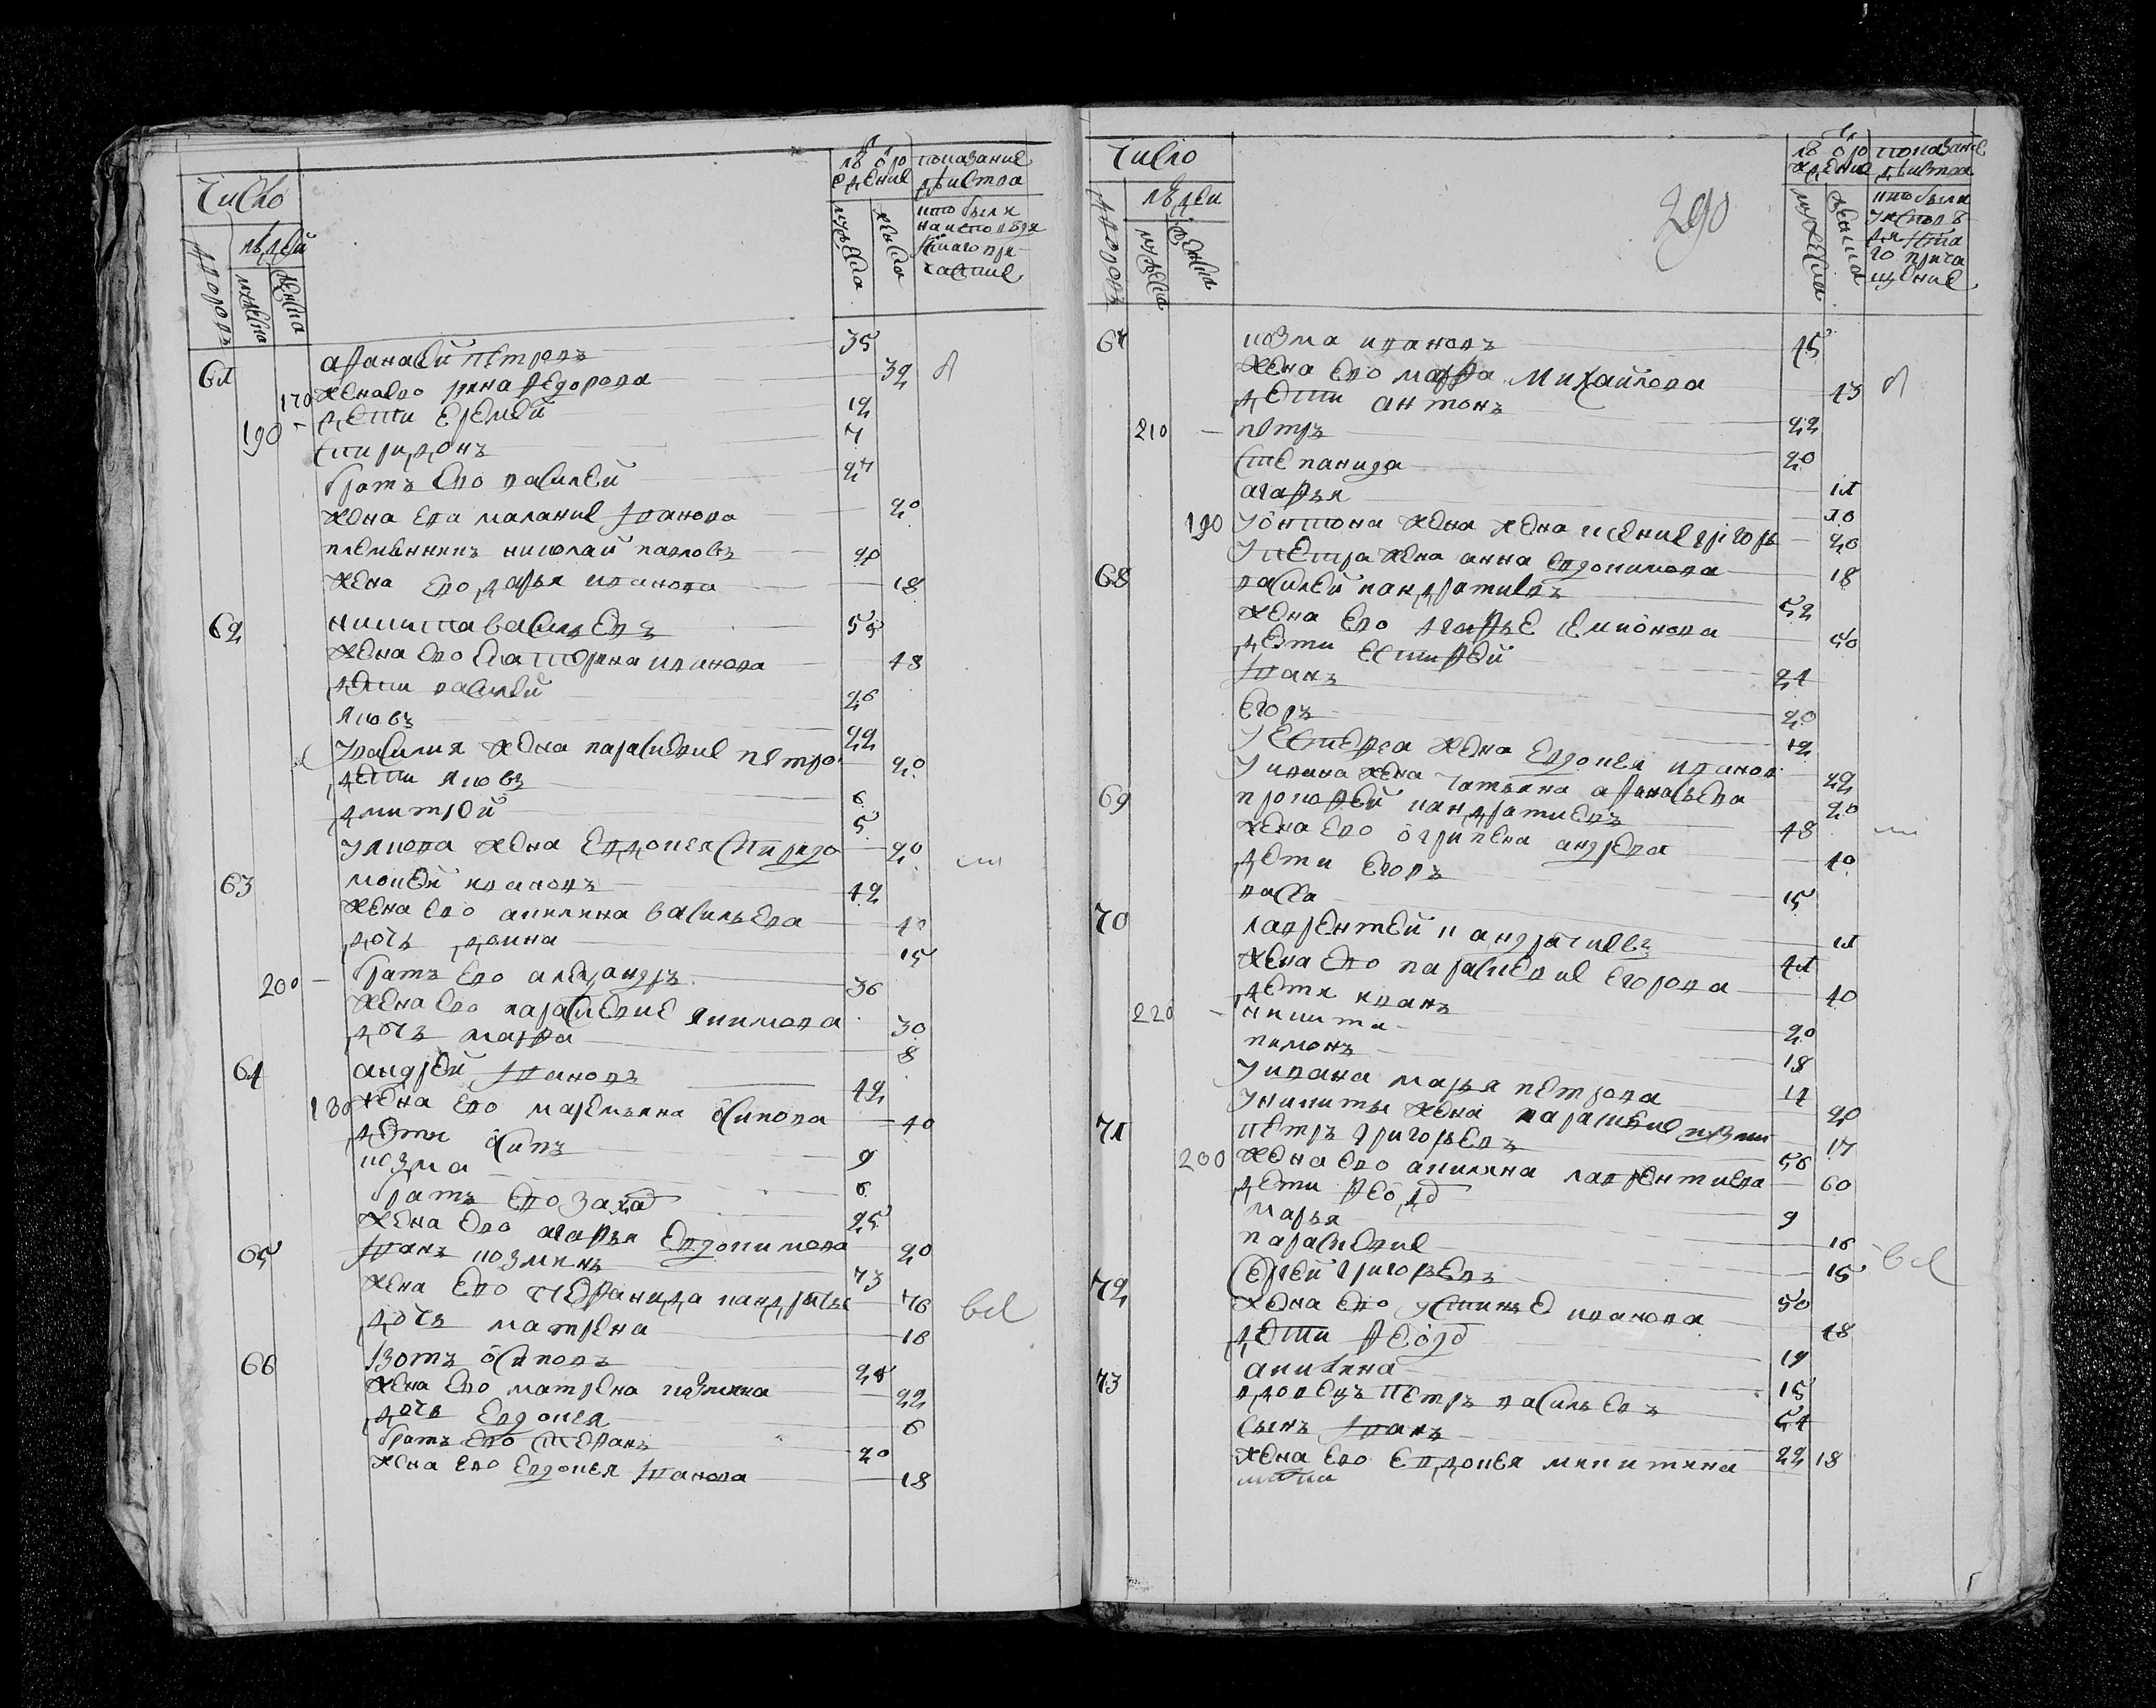 Число
людей
дворовъ
мужеска
женска
лѣ отъ рождения
мужеска
женска
показание действа
кто были на исповеди и святаго причастие
61 афанасей петровъ 35
170 жена ево ирина федорова 32
190 - дети еремей 12
спиридонъ 7
братъ ево василей 27
жена ево малание иванова 20
племянникъ николай павловъ 20
жена ево дарья иванова 18
62 никита васильевъ 55
жена ево екатерина иванова 48
дети василей 26
яковъ 22
у василия жена параскевие петро 20
дети яковъ 6
дмитрей 5
у якова жена евдокея спиридо 20
63 мокей ивановъ 42
жена ево акилина васильева 40
дочь домна 15
200 - братъ ево александръ 36
жена ево параскевие якимова 30
дочь марфа 8
64 андрей ивановъ 42
180 жена ево маремьяна осипова 40
дети осипъ 9
козма 6
братъ ево захар 25
жена ево агафья евдокимова 20
65 иванъ козминъ 73
жена ево стефанида кандратье 76
дочь матрена 16
66 изотъ осиповъ 25
жена ево матрена козмина 22
дочь евдокея 6
братъ ево стефанъ 20
жена ево евдокея иванова 18
290
Число
людей
дворовъ
мужеска
женска
лѣ отъ рождение
мужеска
женска
показание действа
кто были у исповеди святаго причащение
67 козма ивановъ 45
жена ево марфа михайлова 43
дети антонъ 22
210 - петръ 20
степанида 11
агафья 10
190 у онтона жена жена ксение григорь 20
у петра жена анна евдокимова 18
68 василей кандратиевъ 52
жена ево агафье семионова 50
дети естифей 24
иванъ 20
егоръ 12
у естифеа жена евдокея иванов 22
у ивана жена татьяна афанасьева 20
69 прокофей кандратиевъ 48
жена ево огрипена андрева 40
дети егоръ 15
васса 11
70 лаврентей кандратиевъ 41
жена ево параскевие егорова 40
дети иванъ 20
220 - никита 18
пимонъ 14
у ивана марья петрова 20
у никиты жена параскевие козми 17
71 петръ григорьевъ 56
200 жена ево акилина лаврентиева 60
дети федор 9
марья 16
параскевие 15
72 сергей григорьевъ 50
жена ево устинье иванова 48
дети федор 19
акилина 15
73 вдовецъ петръ васильевъ 54
сынъ иванъ 22
жена ево евдокея микитина 18